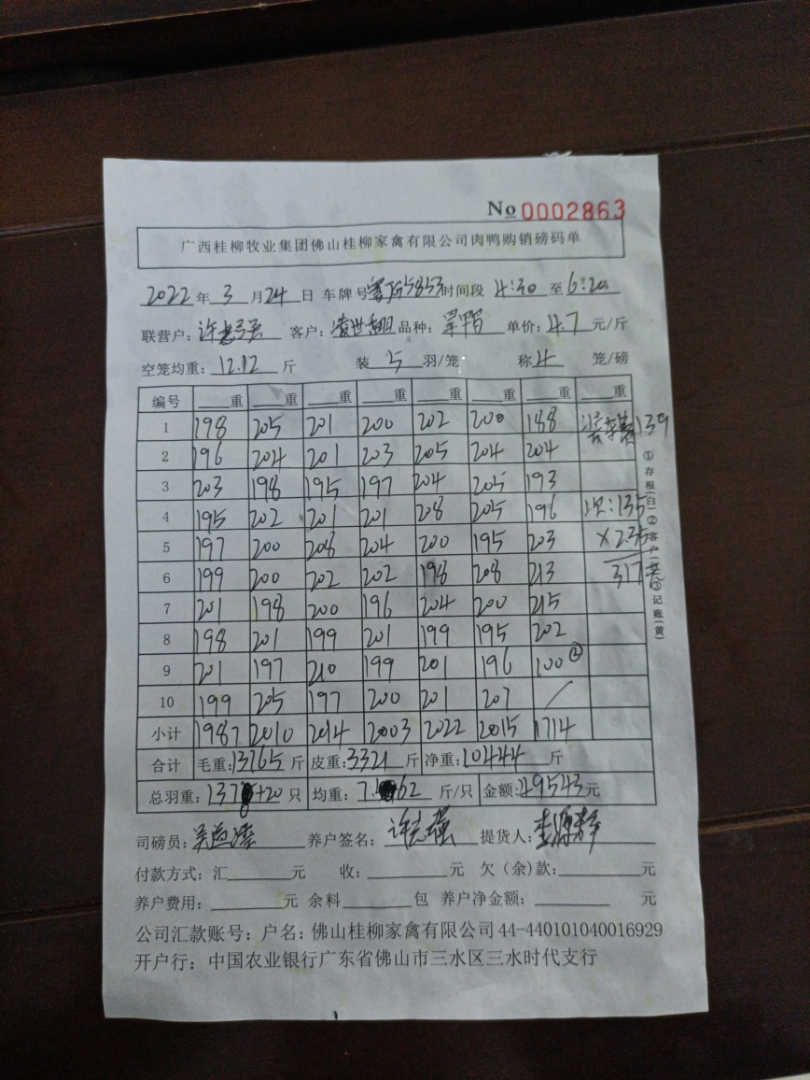 No 0002863
广西桂柳牧业集团佛山桂柳家禽有限公司肉鸭购销磅码单
2022年3月24日 车牌号 5853 时间段 4:30 至 6:20
联营户: 许 客户: 凌世 品种: 单价: 4.7 元/斤
空笼均重: 12.12 斤 装 5 羽/笼 称 4 笼/磅
编号 重 重 重 重 重 重 重 重
1 198 205 201 200 202 200 188 139
2 196 204 201 203 205 204 204
3 203 198 195 197 204 205 193
4 195 202 201 201 208 205 196 135
5 197 200 208 204 200 195 203 ×2.35
6 199 200 202 202 198 208 213 317
7 201 198 200 196 204 200 215
8 198 201 199 201 199 195 202
9 201 197 210 199 201 196 100②
10 199 205 197 200 201 207 /
小计 1987 2010 2014 2003 2022 2015 1714
合计 毛重: 13765 斤 皮重: 3321 斤 净重: 10444 斤
总羽重: +20 只 均重: 62 斤/只 金额: 49543 元
司磅员: 养户签名: 许 提货人:
付款方式: 汇 元 收: 元 欠(余)款: 元
养户费用: 元 余料 包 养户净金额: 元
公司汇款账号: 户名: 佛山桂柳家禽有限公司 44-440101040016929
开户行: 中国农业银行广东省佛山市三水区三水时代支行
①存根(白)②客户(红)③记账(黄)